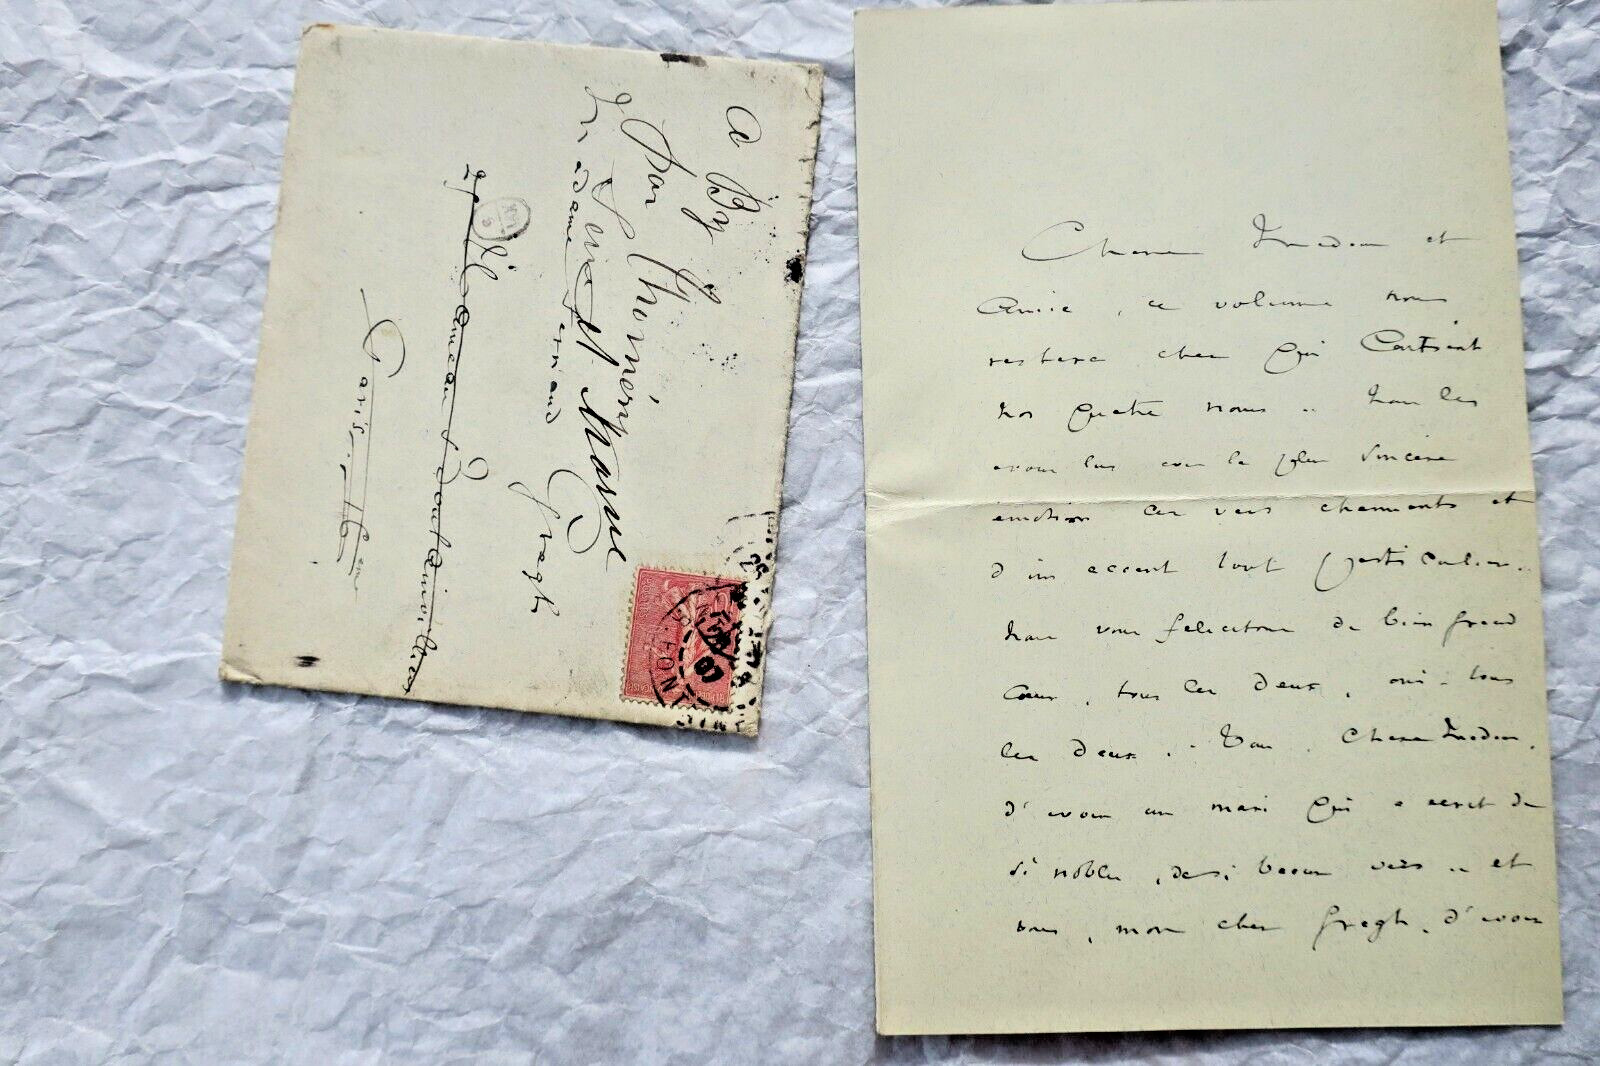 A By
par Thomery
Seine et Marne
Madame Fernand Gregh
Paris
Chère Madame et
Amie, ce volume nous
restera cher qui contient
nos quatre noms .. Nous les
avons lus avec la plus sincère
émotion ces vers charmants et
d'un accent tout particulier.
Nous vous félicitons de bien grand
cœur, tous les deux, oui, tous
les deux. Vous, Chère Madame,
d'avoir un mari qui a écrit de
si nobles, de si beaux vers .. et
vous, mon cher Gregh, d'avoir